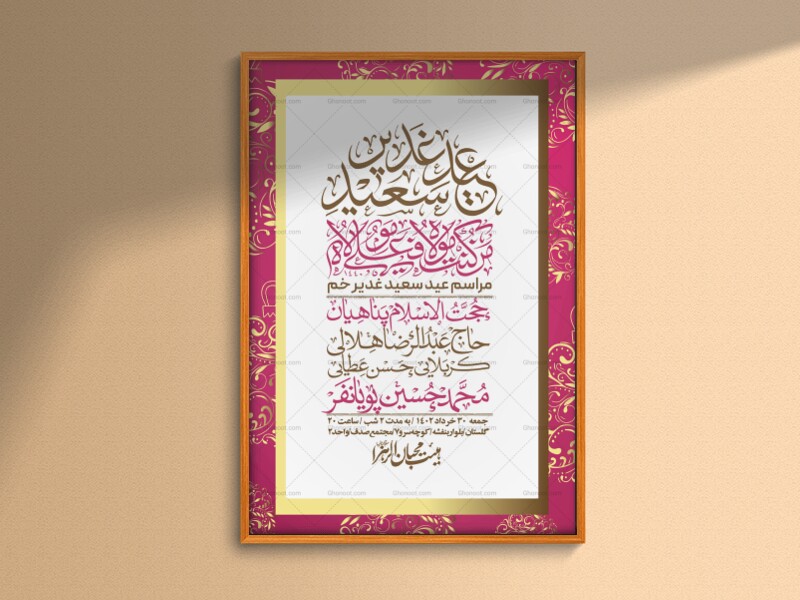 عید سعید غدیر
من کنت مولاه فعلی مولاه
مراسم عید سعید غدیر خم
حجت الاسلام پناهیان
حاج عبدالرضا هلالی
کربلایی حسن عطایی
محمدحسین پویانفر
جمعه ۳۰ خرداد ۱۴۰۲ / به مدت ۲ شب / ساعت ۲۰
گلستان/بلوار بنفشه/کوچه سرو۷/مجتمع صدف/واحد۲
هیئت محبان الزهرا